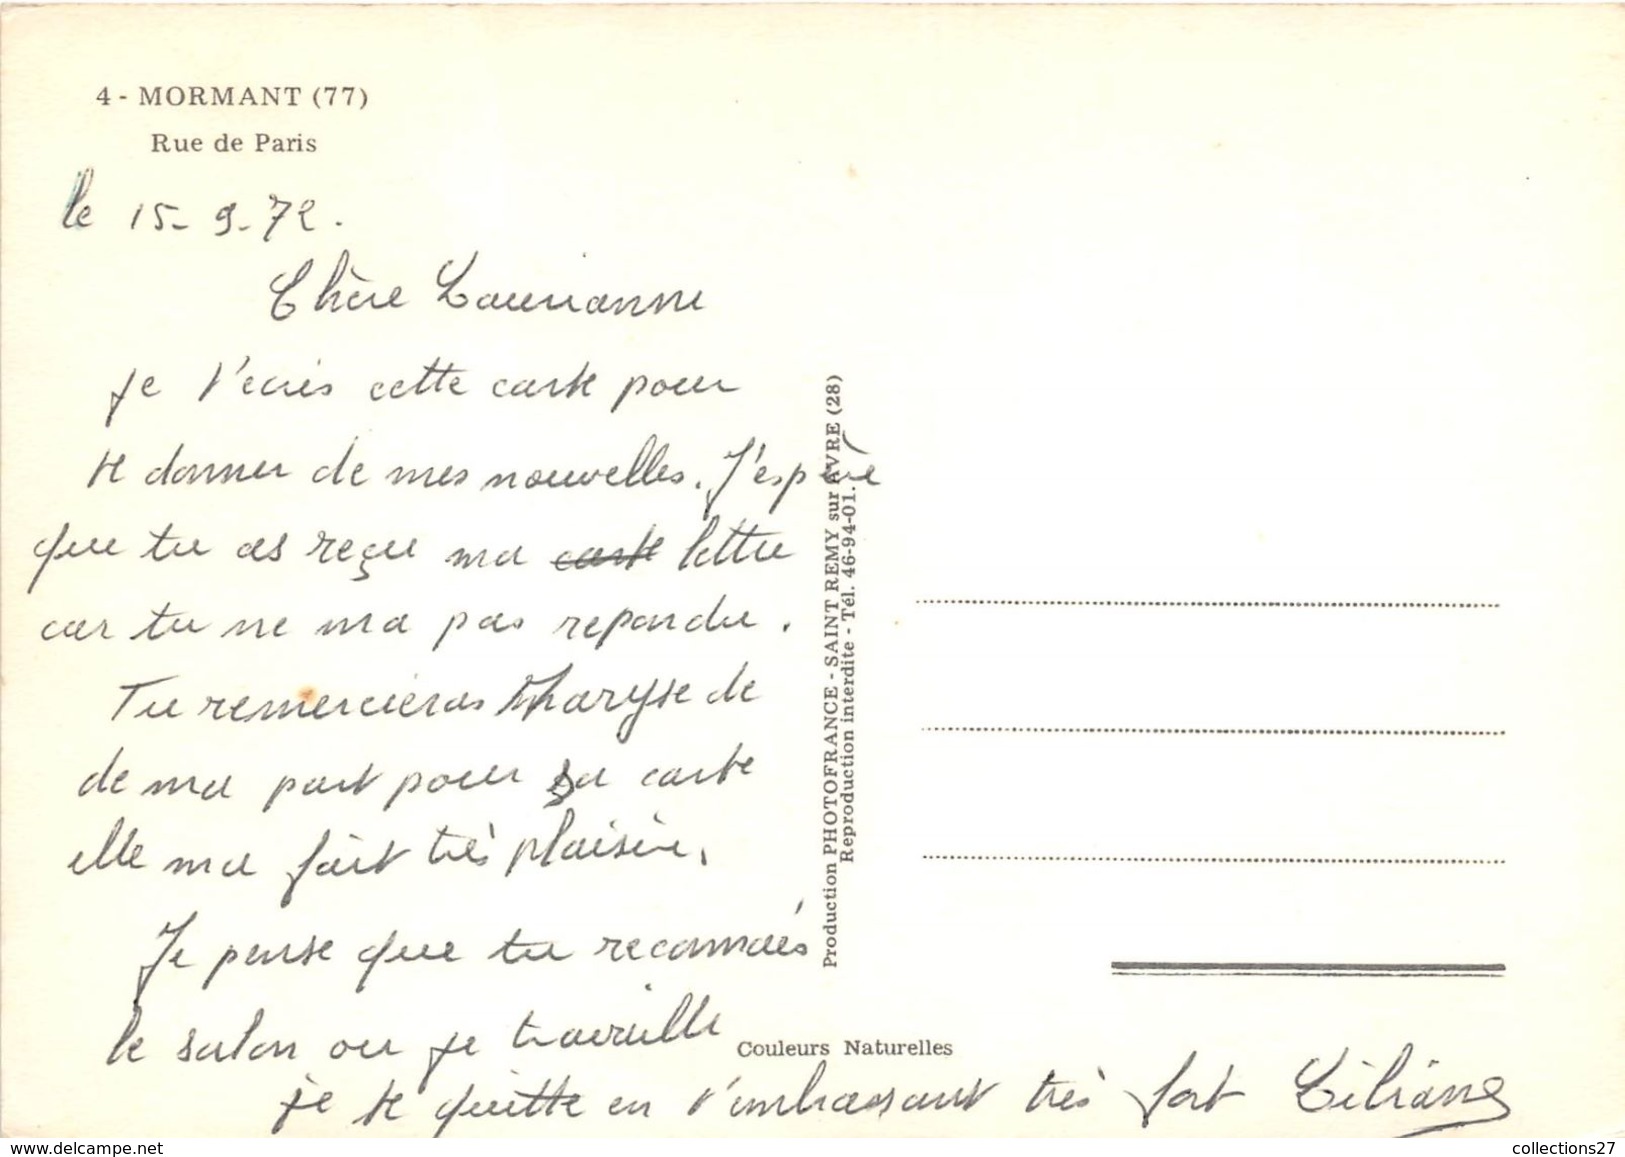 4 - MORMANT (77)
Rue de Paris
le 15-9-72.
Chère Laurianne
je t'ecris cette carte pour
te donner de mes nouvelles. J'espère
que tu as reçu ma carte lettre
car tu ne ma pas repondu.
Tu remercieras Maryse de
de ma part pour sa carte
elle ma fait très plaisir.
Je pense que tu reconnais
le salon ou je travaille
je te quitte en t'embrassant très fort Liliane
Production PHOTOFRANCE - SAINT REMY sur AVRE (28)
Reproduction interdite - Tél. 46-94-01.
Couleurs Naturelles
collections27